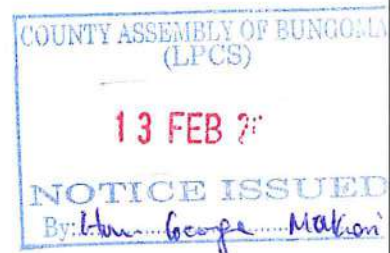 COUNTY ASSEMBLY OF BUNGOMA
(LPCS)
13 FEB
NOTICE ISSUED
By: Hon George Makari